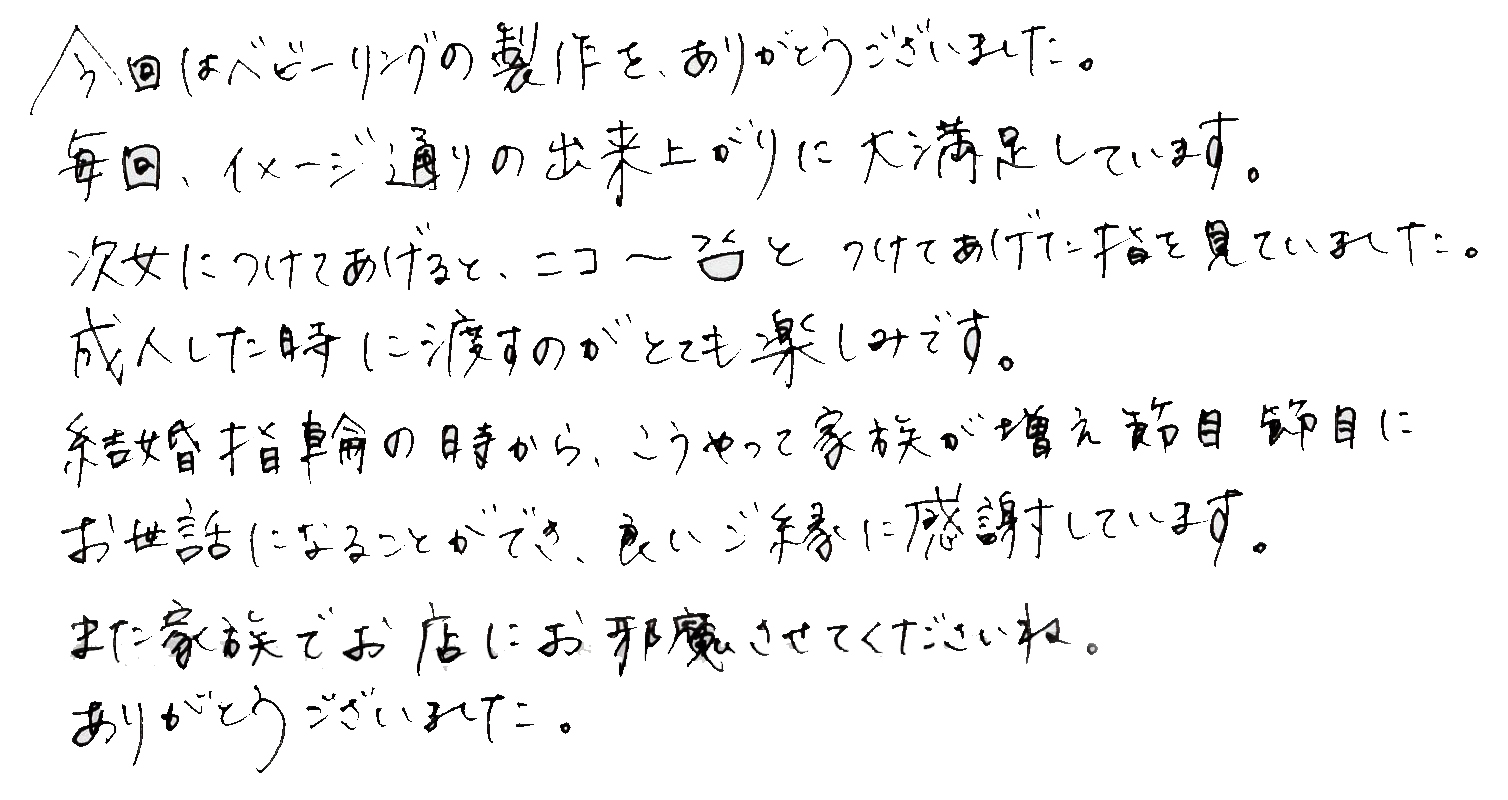 今回はベビーリングの製作を、ありがとうございました。
毎回、イメージ通りの出来上がりに大満足しています。
次女につけてあげると、ニコ〜とつけてあげてた指を見ていました。
成人した時に渡すのがとても楽しみです。
結婚指輪の時から、こうやって家族が増え節目節目に
お世話になることができ、良いご縁に感謝しています。
また家族でお店にお邪魔させてくださいね。
ありがとうございました。